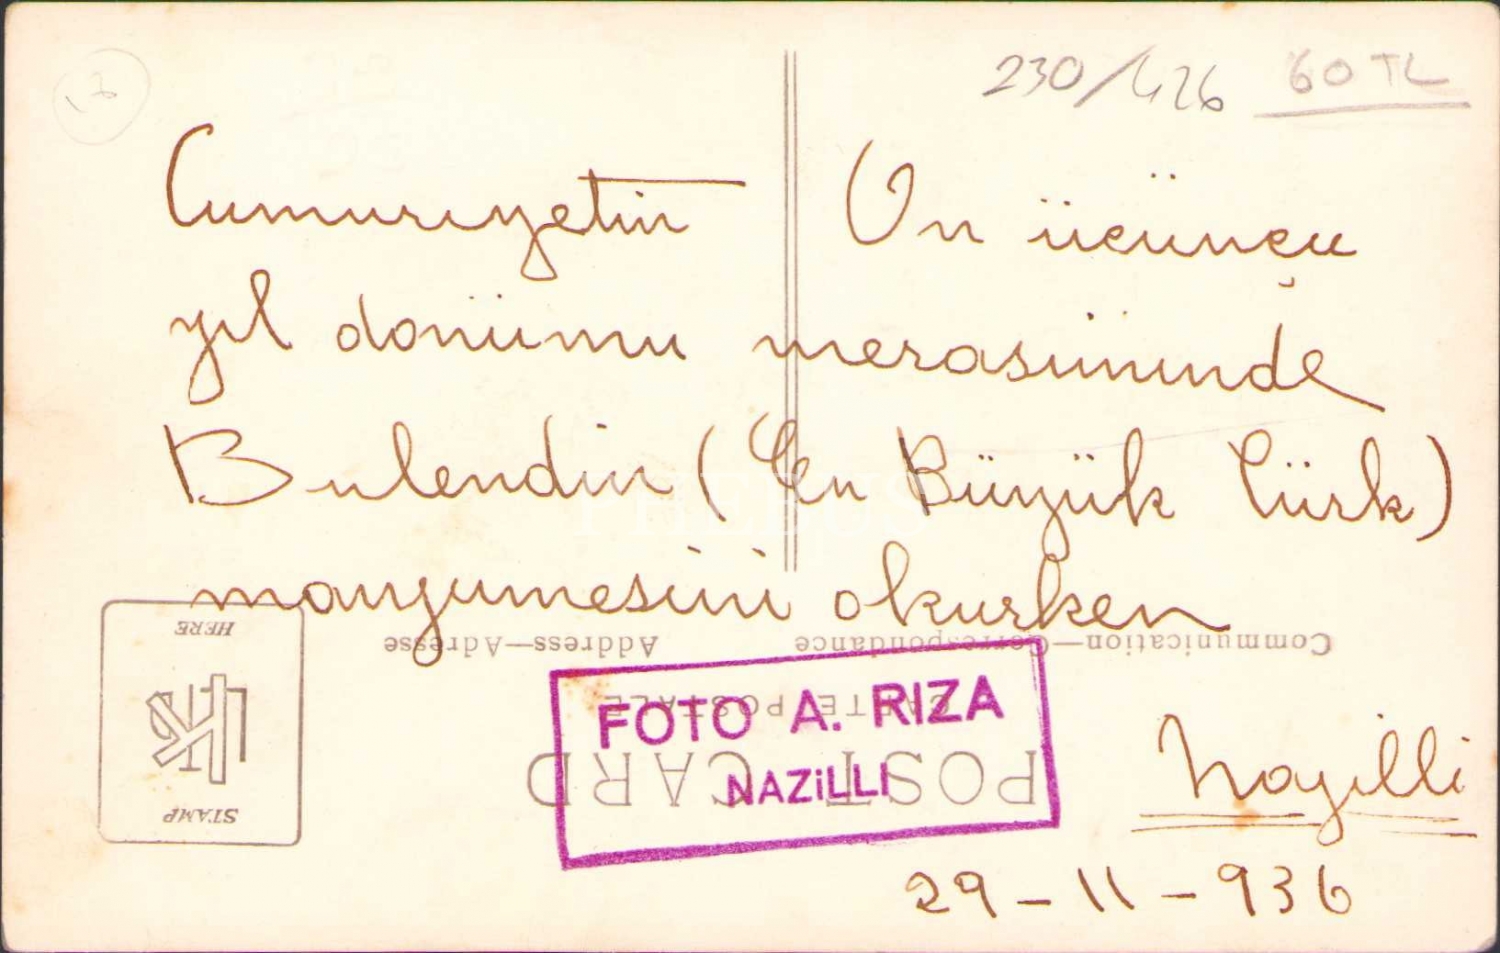 17
230/426 60 TL
Cumuriyetin On üçüncü
yıl dönümü merasiminde
Bulendin (En Büyük Türk)
manzumesini okurken
Communication—Correspondance Address—Adresse
CARTE POSTALE
POST CARD
STAMP
HERE
FOTO A. RIZA
NAZiLLi
Nazilli
29-11-936
PHEBUS